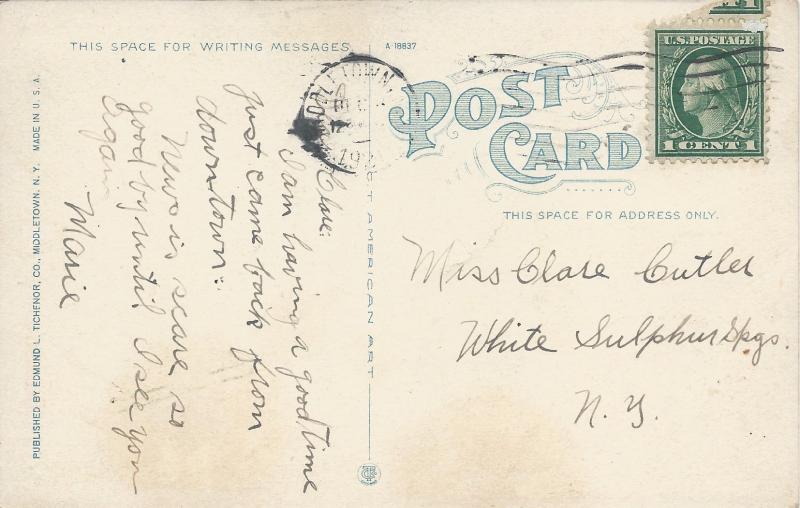 THIS SPACE FOR WRITING MESSAGES
A-18837
POST
CARD
U.S. POSTAGE
1 CENT 1
THIS SPACE FOR ADDRESS ONLY.
Clare:
I am having a good time
just came back from
downtown.
News is scare so
good by until I see you
again
Marie
Miss Clare Cutler
White Sulphur Spgs.
N. Y.
PUBLISHED BY EDMUND L. TICHENOR, CO., MIDDLETOWN, N. Y. MADE IN U. S. A.
T AMERICAN ART